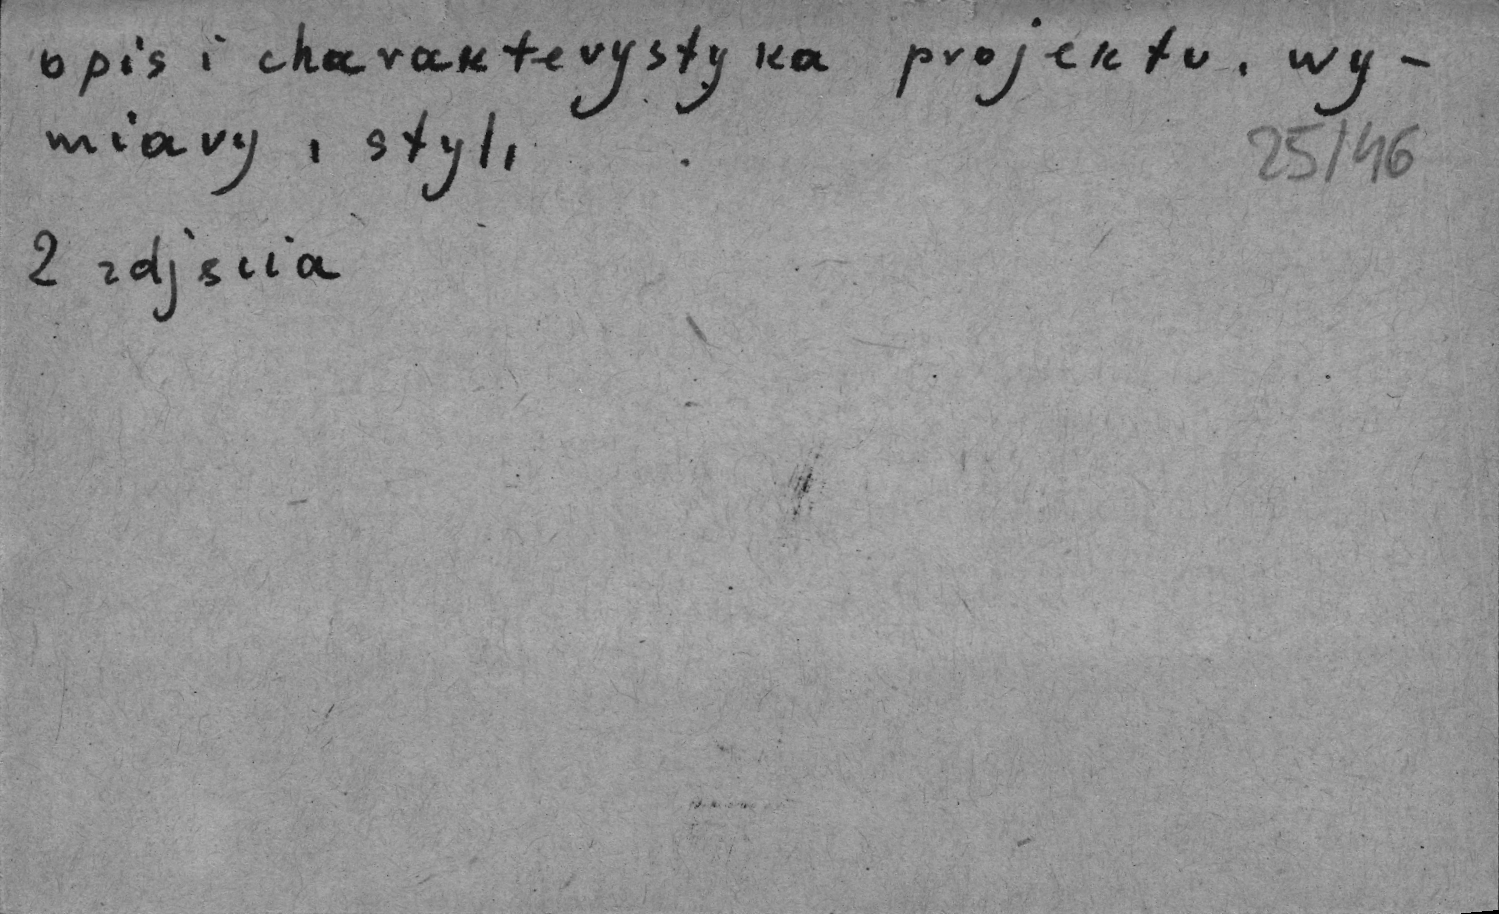 opis i charakterystyka projektu, wy-
miary, styl,
25/46
2 zdjścia